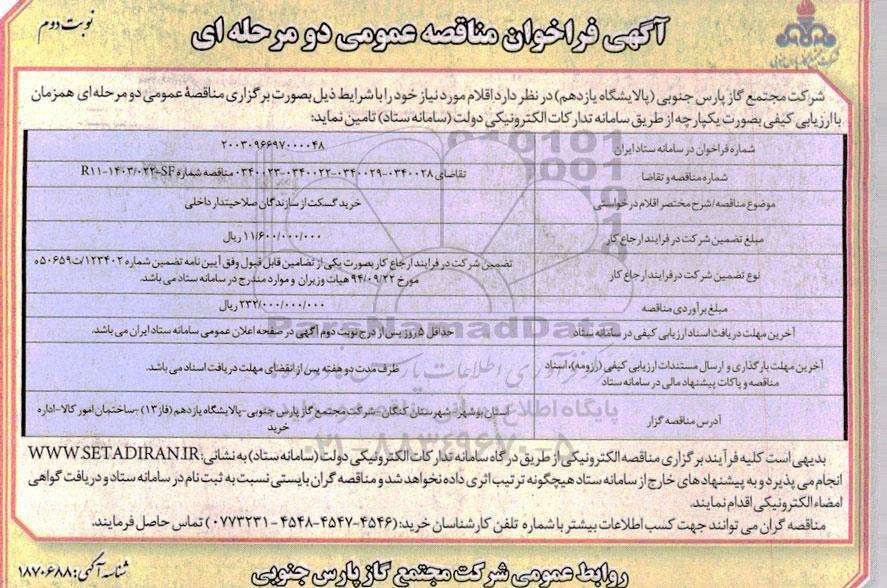 نوبت دوم
آگهی فراخوان مناقصه عمومی دو مرحله ای
شرکت مجتمع گاز پارس جنوبی
شرکت مجتمع گاز پارس جنوبی (پالایشگاه یازدهم) در نظر دارد اقلام مورد نیاز خود را با شرایط ذیل بصورت برگزاری مناقصهٔ عمومی دو مرحله ای همزمان
با ارزیابی کیفی بصورت یکپارچه از طریق سامانه تدارکات الکترونیکی دولت (سامانه ستاد) تامین نماید:
شماره فراخوان در سامانه ستاد ایران ۲۰۰۳۰۹۶۶۹۷۰۰۰۰۴۸
شماره مناقصه و تقاضا تقاضای ۰۳۴۰۰۲۸-۰۳۴۰۰۲۹-۰۳۴۰۰۲۲-۰۳۴۰۰۲۳ مناقصه شماره R۱۱-۱۴۰۳/۰۲۲-SF
موضوع مناقصه/شرح مختصر اقلام درخواستی خرید گسکت از سازندگان صلاحیتدار داخلی
مبلغ تضمین شرکت در فرایند ارجاع کار ۱۱/۶۰۰/۰۰۰/۰۰۰ ریال
نوع تضمین شرکت در فرایند ارجاع کار تضمین شرکت در فرایند ارجاع کار بصورت یکی از تضامین قابل قبول وفق آیین نامه تضمین شماره ۱۲۳۴۰۲/ت۵۰۶۵۹ه
مورخ ۹۴/۰۹/۲۲ هیات وزیران و موارد مندرج در سامانه ستاد می باشد.
مبلغ برآوردی مناقصه ۲۳۲/۰۰۰/۰۰۰/۰۰۰ ریال
آخرین مهلت دریافت اسناد ارزیابی کیفی در سامانه ستاد حداقل ۵ روز پس از درج نوبت دوم آگهی در صفحه اعلان عمومی سامانه ستاد ایران می باشد.
آخرین مهلت بارگذاری و ارسال مستندات ارزیابی کیفی (رزومه)، اسناد
مناقصه و پاکات پیشنهاد مالی در سامانه ستاد ظرف مدت دو هفته پس از انقضای مهلت دریافت اسناد می باشد.
آدرس مناقصه گزار استان بوشهر- شهرستان کنگان- شرکت مجتمع گاز پارس جنوبی-پالایشگاه یازدهم (فاز۱۳) -ساختمان امور کالا-اداره
خرید
بدیهی است کلیه فرآیند برگزاری مناقصه الکترونیکی از طریق درگاه سامانه تدارکات الکترونیکی دولت (سامانه ستاد) به نشانی: WWW.SETADIRAN.IR
انجام می پذیرد و به پیشنهادهای خارج از سامانه ستاد هیچگونه ترتیب اثری داده نخواهد شد و مناقصه گران بایستی نسبت به ثبت نام در سامانه ستاد و دریافت گواهی
امضاء الکترونیکی اقدام نمایند.
مناقصه گران می توانند جهت کسب اطلاعات بیشتر با شماره تلفن کارشناسان خرید: (۴۵۴۶-۴۵۴۷-۴۵۴۸ - ۰۷۷۳۲۳۱) تماس حاصل فرمایند.
روابط عمومی شرکت مجتمع گاز پارس جنوبی
شناسه آگهی: ۱۸۷۰۶۸۸
ParsNamadData
پایگاه اطلاع رسانی
۰۲۱-۸۸۳۴۹۶۷۰-۵